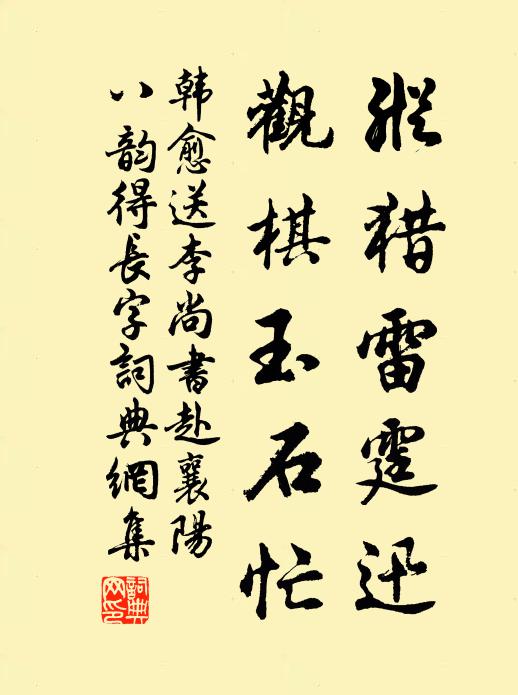 縱猎雷霆迅
觀棋玉石忙
韩愈送李尚書赴襄陽
八韵得長字詞典網集
詞典网印